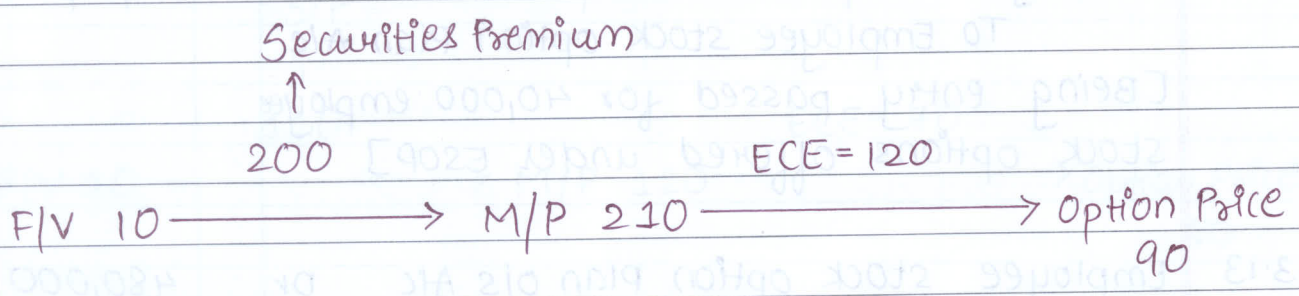 Securities Premium
↑
200 ECE = 120
F/V 10 → M/P 210 → Option Price
90